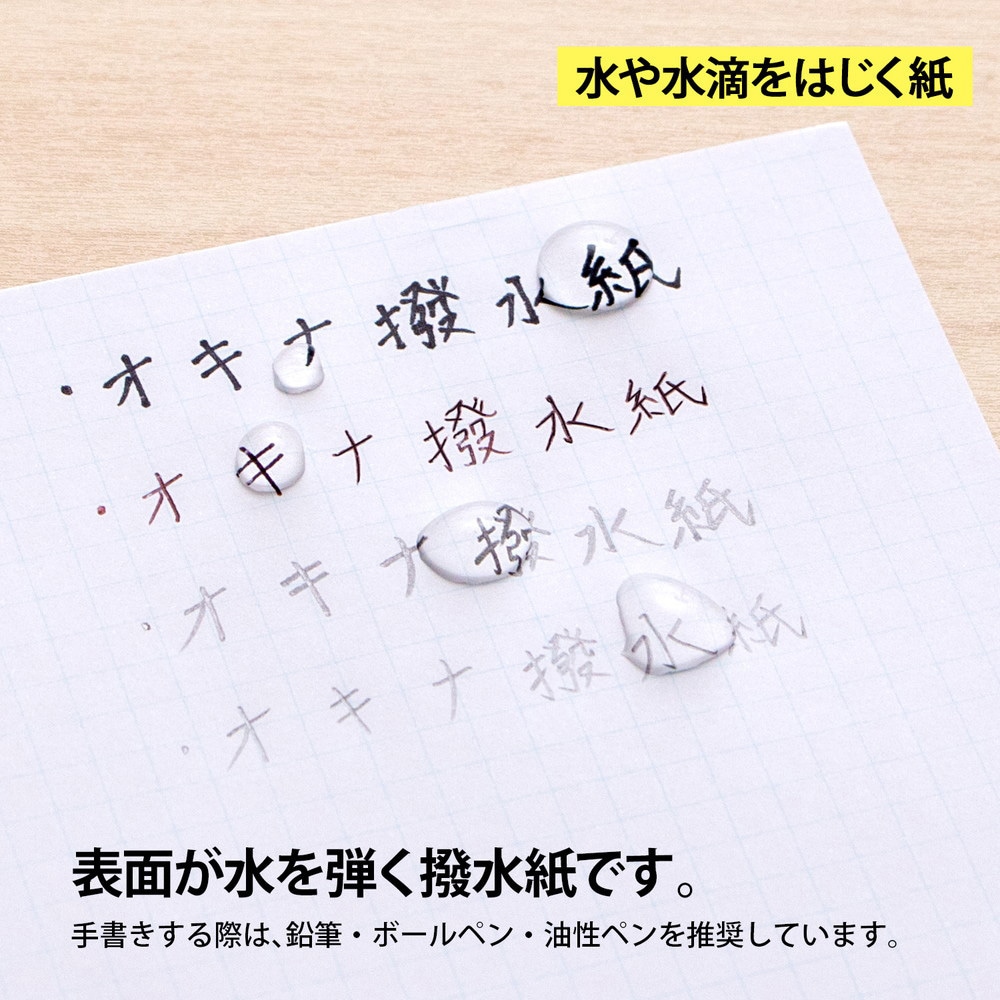 水や水滴をはじく紙
・オキナ撥水紙
・オキナ撥水紙
・オキナ撥水紙
・オキナ撥水紙
表面が水を弾く撥水紙です。
手書きする際は、鉛筆・ボールペン・油性ペンを推奨しています。